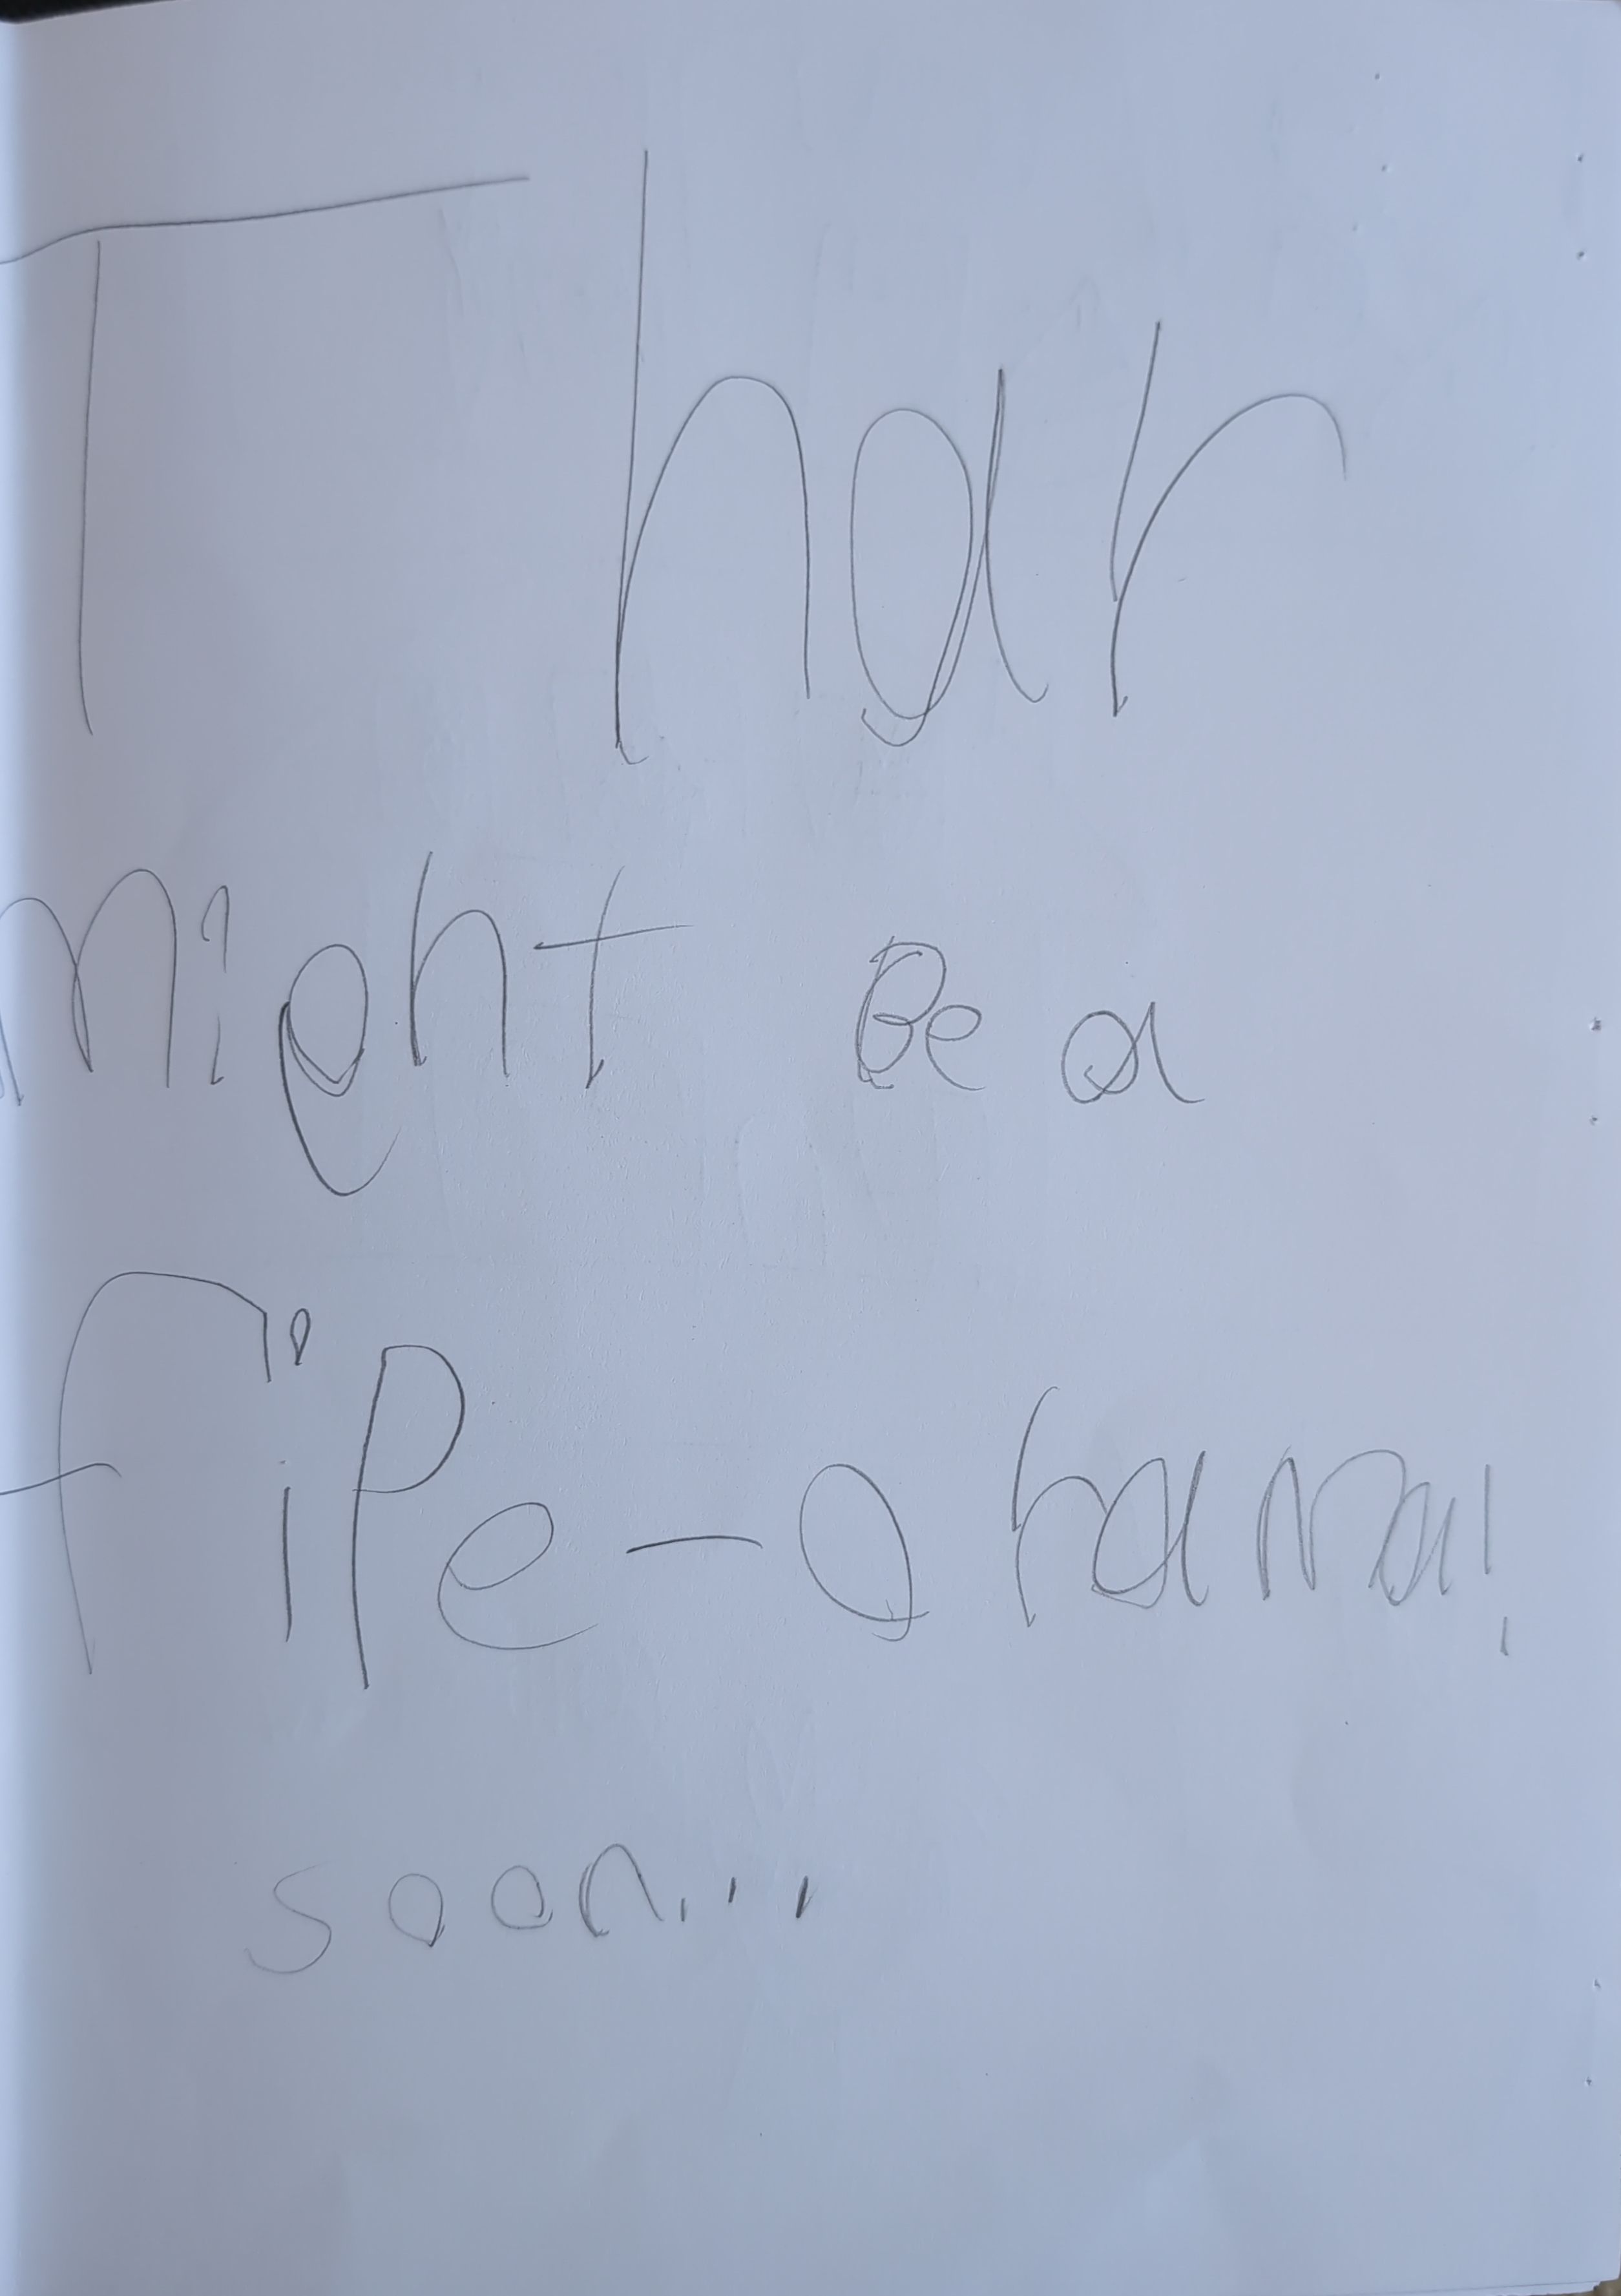 Thar
might Be a
fipe-o rama!
soon...